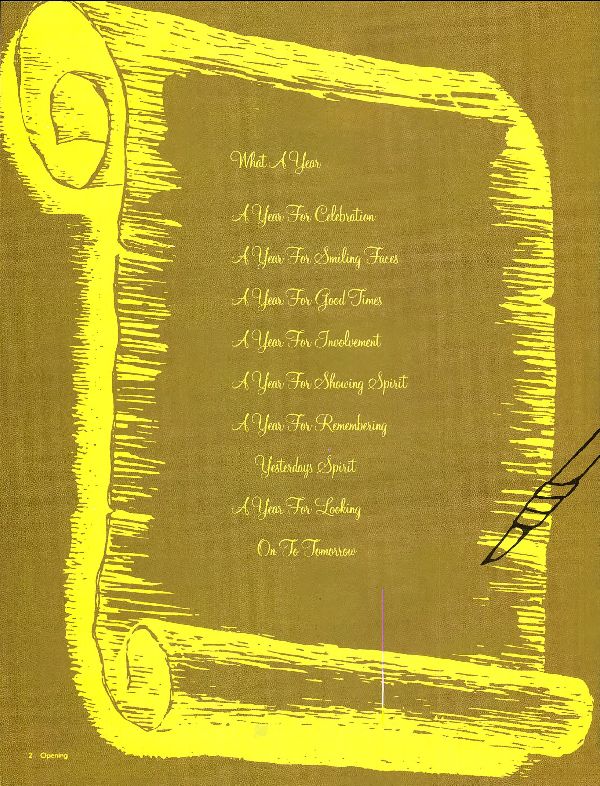 What A Year
A Year For Celebration
A Year For Smiling Faces
A Year For Good Times
A Year For Involvement
A Year For Showing Spirit
A Year For Remembering
Yesterdays Spirit
A Year For Looking
On To Tomorrow
2 Opening